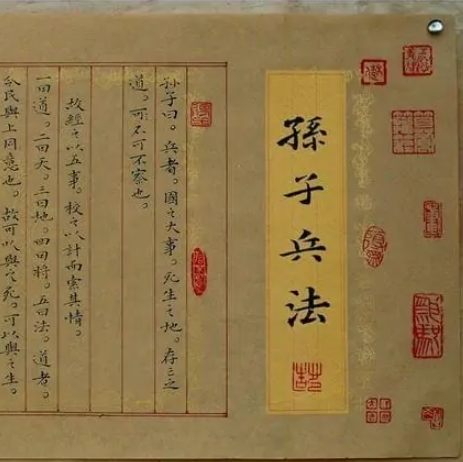 孫子兵法
孫子曰。兵者。國之大事。死生之地。存亡之
道。可不可不察也。
故經之以五事。校之以計而索其情。
一曰道。二曰天。三曰地。四曰將。五曰法。道者。
令民與上同意也。故可以與之死。可以與之生。